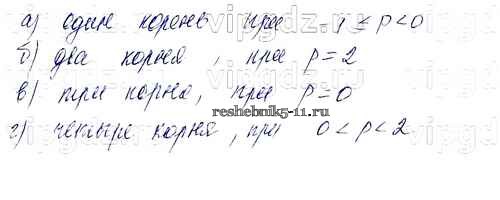 а) один корень при -1 ≤ p < 0
б) два корня, при p = 2
в) три корня, при p = 0
reshebnik5-11.ru
г) четыре корня, при 0 < p < 2